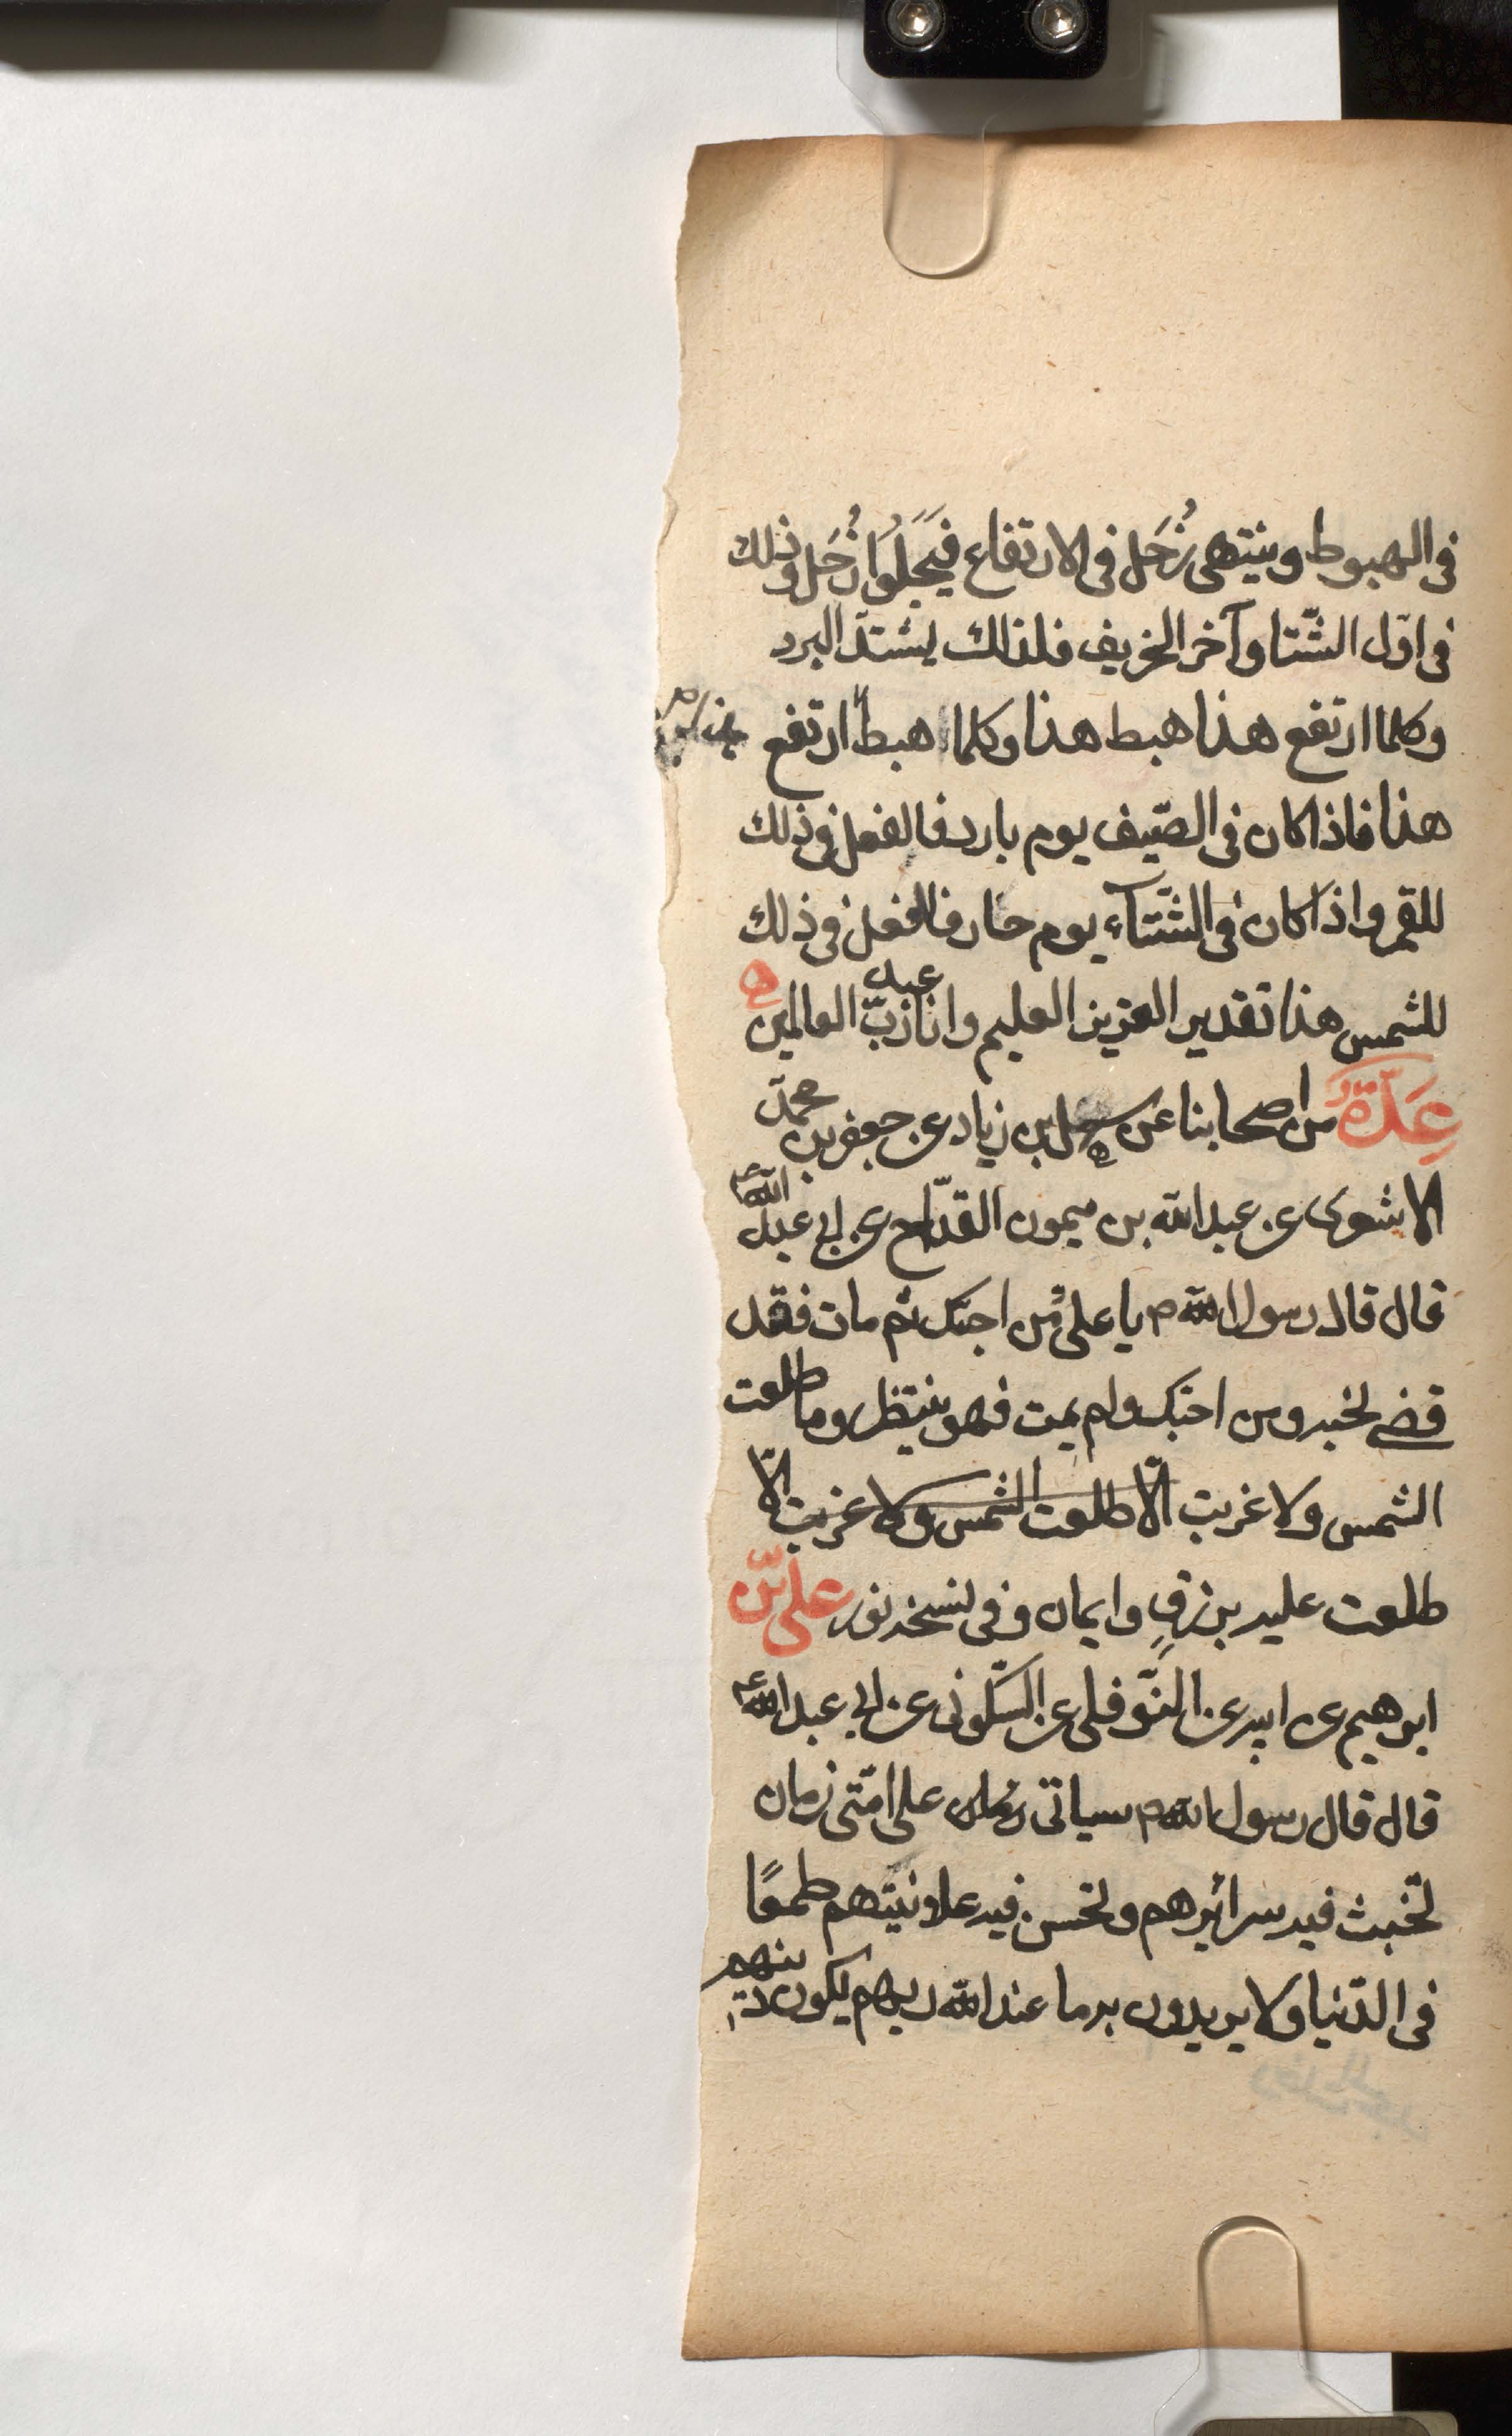 فى الهبوط وينتهى زُحَل فى الارتفاع فَيَجلُوَا زُحَل وذلك
فى اوّل الشّتا وآخر الخريف فلذلك يشتدّ البرد
وكلما ارتفع هذا هبط هذا وكلما هبط ارتفع
هذا فاذا كان فى الصّيف يوم بارد فالفعل فى ذلك
للقمر واذا كان فى الشّتآء يوم حار فالفعل فى ذلك
للشمس هذا تقدير العزيز العليم وانا عبد ربّ العالمين ه
عِدّةٌ من اصحابنا عن سهل بن زياد عن جعفر بن محمّد
الاشعرى عن عبدالله بن ميمون القدّاح عن ابى عبدالله ع
قال قال رسول الله ص يا على مَن احبّك ثم مات فقد
قضى نحبه ومن احبّك ولم يمت فهو ينتظر وما طلعت
الشمس ولا غربت الّا طلعت الشمس ولا غربت الّا
طلعت عليه برزقٍ وايمان وفى نسخه نور علىّ بن
ابرهيم عن ابيه عن النّوفلى عن السّكونى عن ابى عبدالله ع
قال قال رسول الله ص سياتى زمان على امّتى زمان
تخبث فيه سرائرهم وتحسن فيه علانيتهم طمعًا
فى الدّنيا ولا يريدون به ما عند الله ربهم يكون دينهم